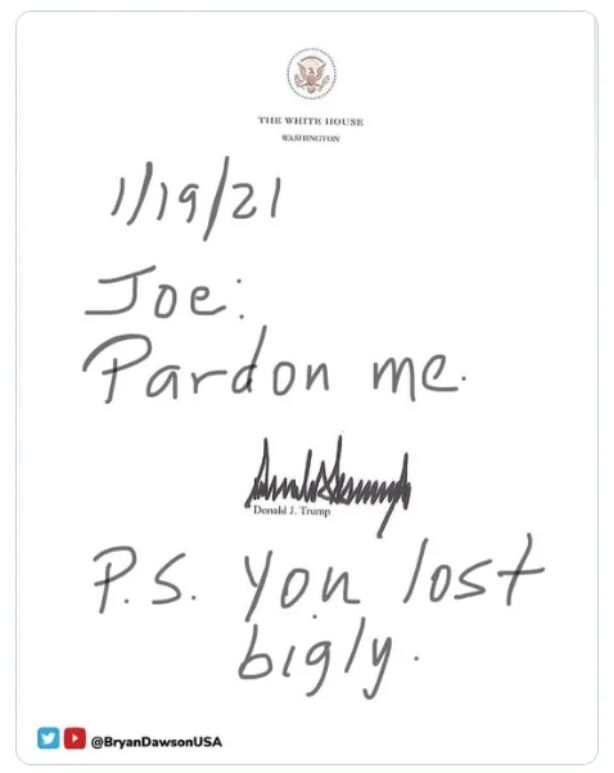 THE WHITE HOUSE
WASHINGTON
1/19/21
Joe:
Pardon me.
Donald J. Trump
P.S. You lost
bigly.
@BryanDawsonUSA